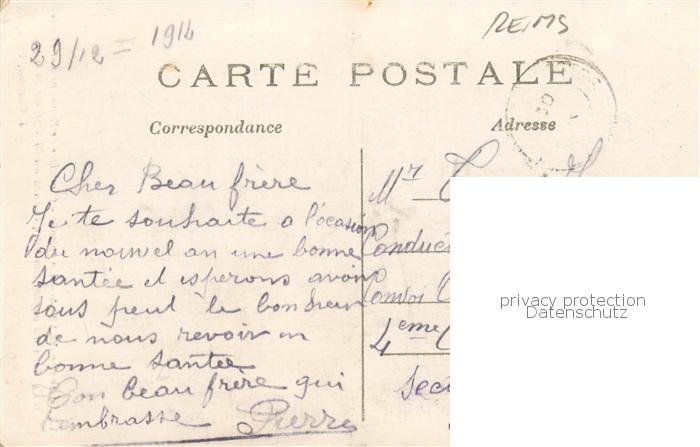 REIMS
29/12 = 1914
CARTE POSTALE
Correspondance
Adresse
Cher Beau frère
Je te souhaite a l'ocasion
du nouvel an une bonne
santée et esperons avoir
sous peut le bonheur
de nous revoir en
bonne santée
Ton beau frère qui
t'embrasse Pierre
Mr
Convoi
4eme
privacy protection
Datenschutz